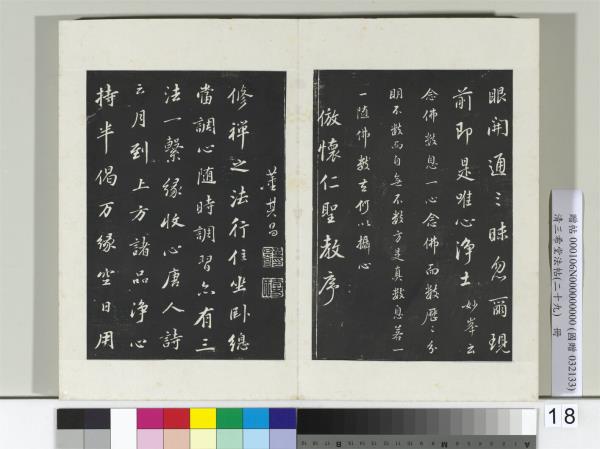 眼開通三昧忽爾現
前即是唯心淨土妙峯云
念佛數息一心念佛而數歷歷分
明不數而自無不數方是真數息若一
一隨佛數去何以攝心
倣懷仁聖教序
董其昌
修禪之法行住坐臥總
當調心隨時調習亦有三
法一繫緣收心唐人詩
云月到上方諸品淨心
持半偈万緣空日用
贈帖 000106N000000000 (國贈 032133)
清三希堂法帖(二十九) 冊
18